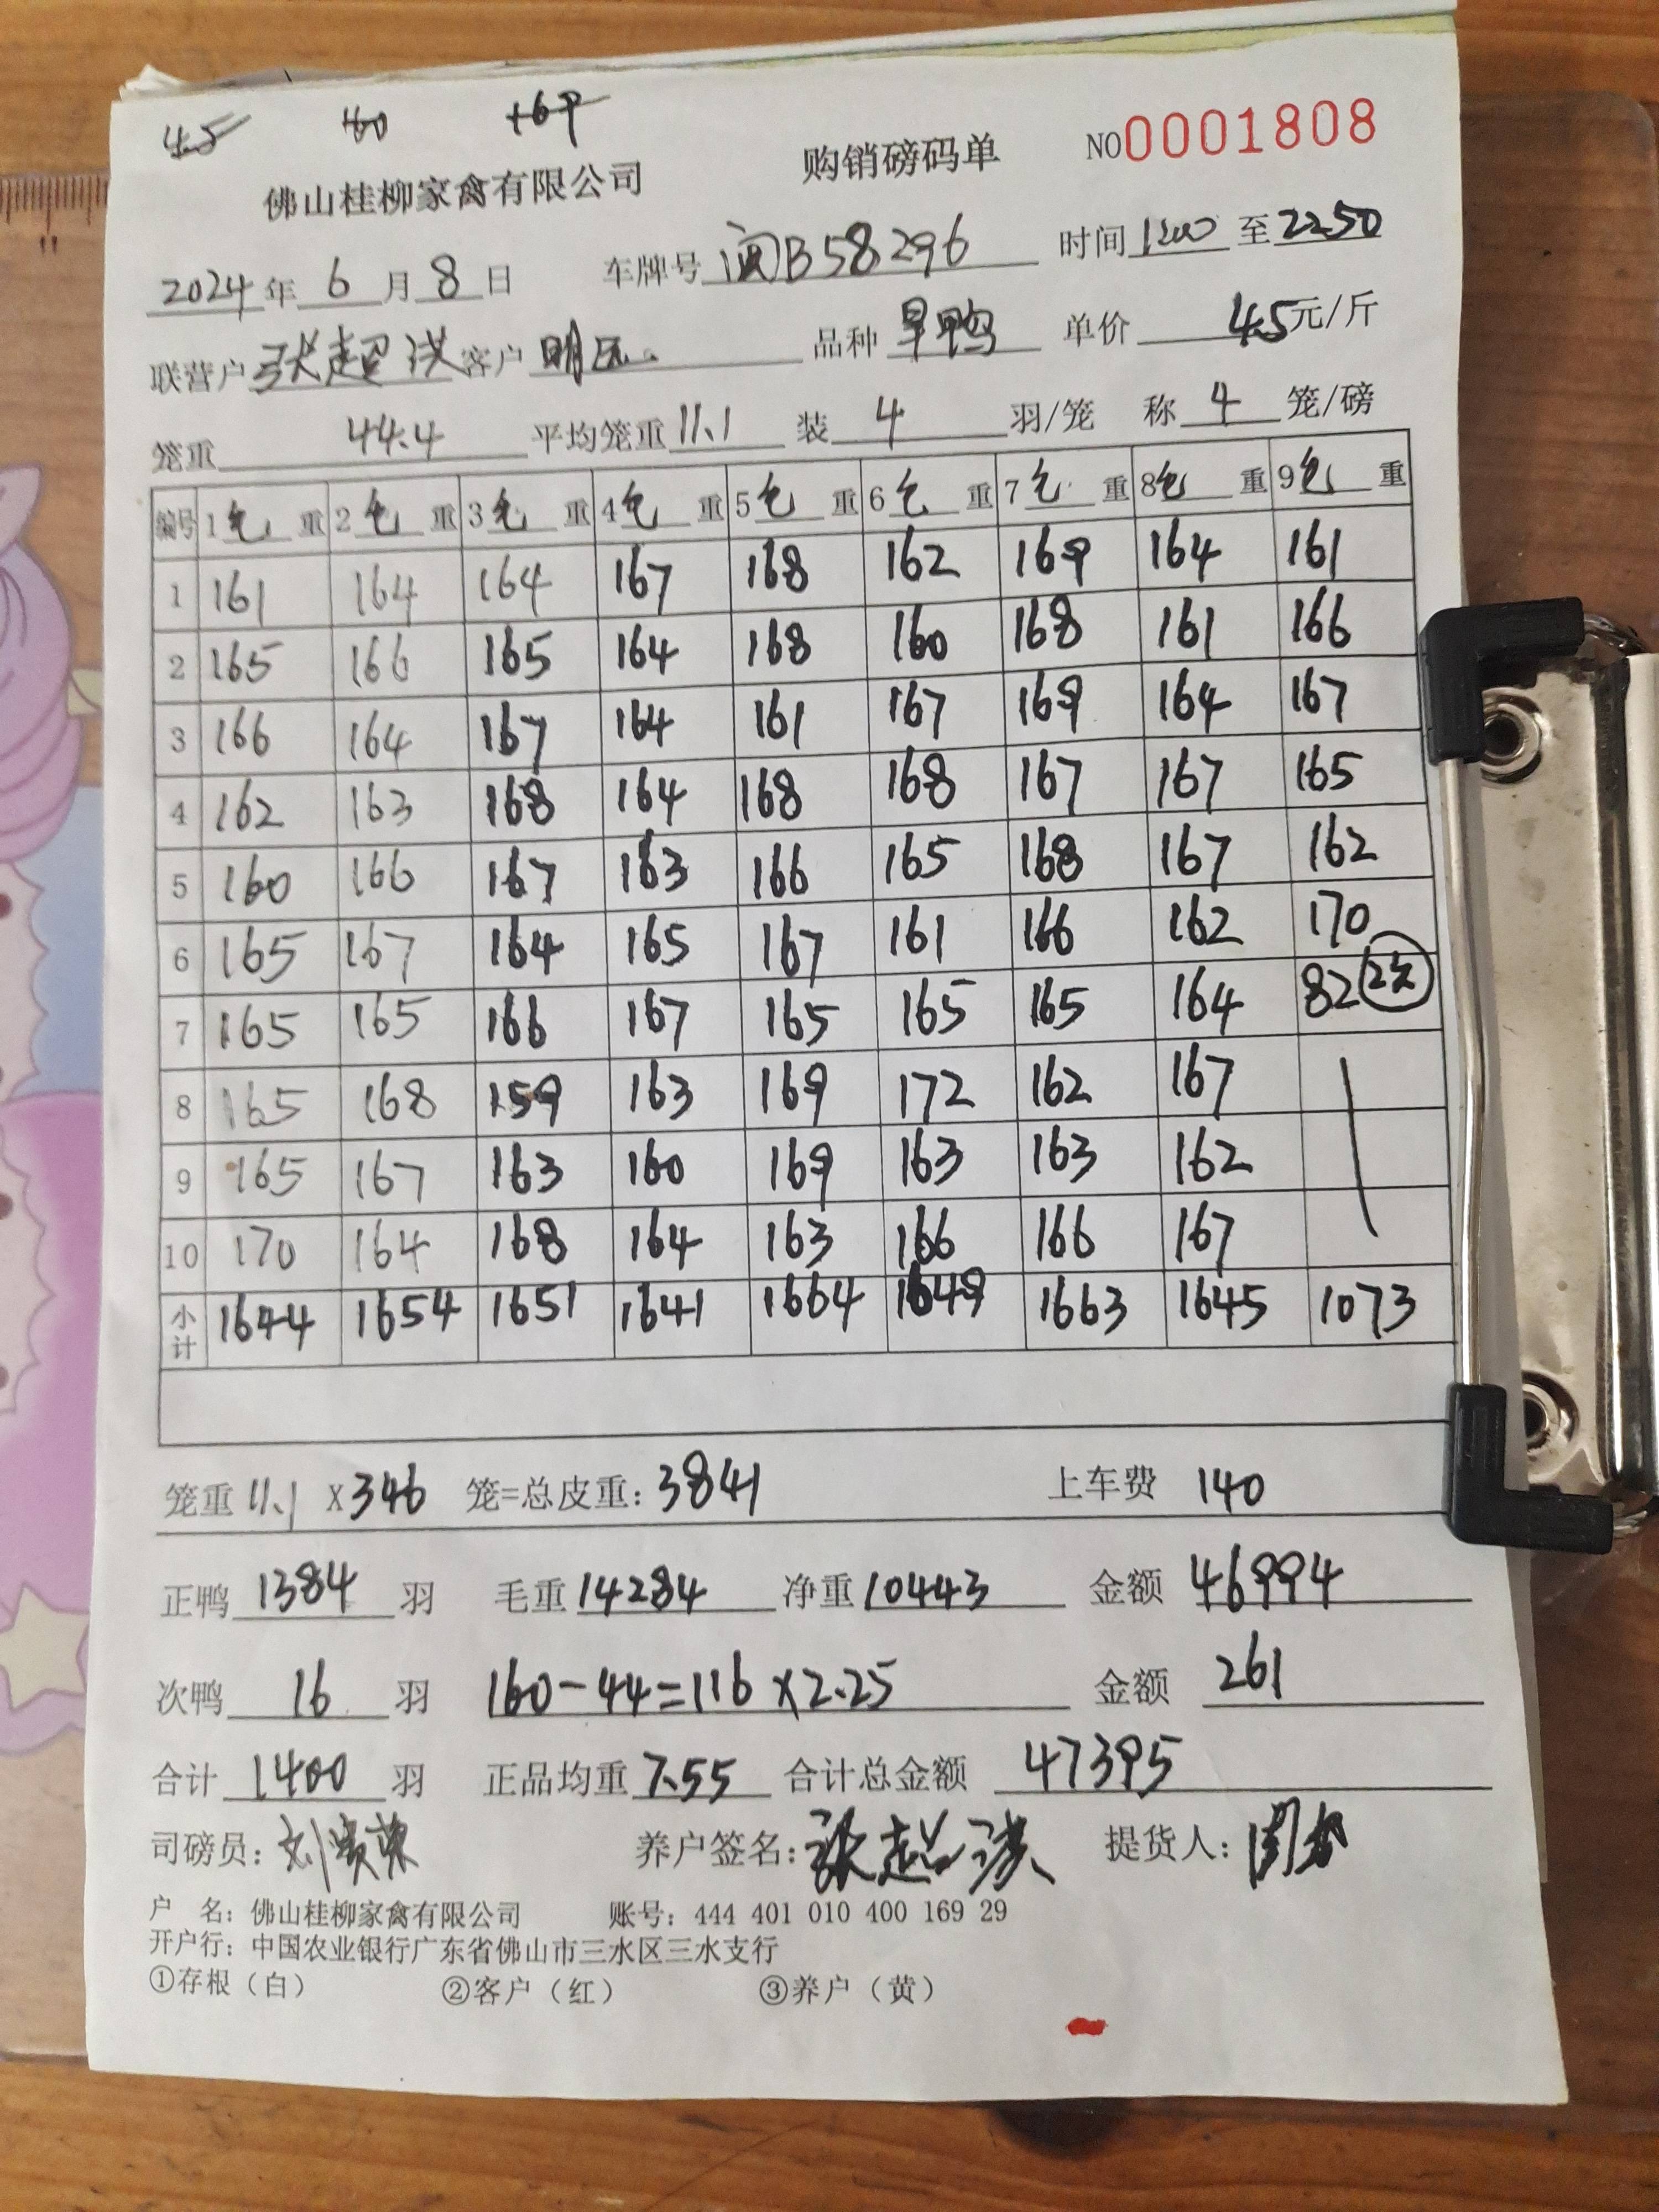 4.5 40 +69
佛山桂柳家禽有限公司 购销磅码单 NO0001808
2024年6月8日 车牌号 闽B58296 时间 至2250
联营户张超洪客户明 品种旱鸭 单价4.5元/斤
笼重44.4 平均笼重11.1 装4羽/笼 称4笼/磅
编号 1 重 2 重 3 重 4 重 5 重 6 重 7 重 8 重 9 重
1 161 164 164 167 168 162 169 164 161
2 165 166 165 164 168 160 168 161 166
3 166 164 167 164 161 167 169 164 167
4 162 163 168 164 168 168 167 167 165
5 160 166 167 163 166 165 168 167 162
6 165 167 164 165 167 161 166 162 170
7 165 165 166 167 165 165 165 164 82
8 165 168 159 163 169 172 162 167
9 165 167 163 160 169 163 163 162
10 170 164 168 164 163 166 166 167
小计 1644 1654 1651 1641 1664 1649 1663 1645 1073
笼重11.1 x346 笼=总皮重:3841 上车费 140
正鸭1384羽 毛重14284 净重10443 金额46994
次鸭16羽 160-44=116 x2.25 金额261
合计1400羽 正品均重7.55 合计总金额47395
司磅员:刘贵荣 养户签名:张超洪 提货人:
户 名:佛山桂柳家禽有限公司 账号:444 401 010 400 169 29
开户行:中国农业银行广东省佛山市三水区三水支行
①存根(白) ②客户(红) ③养户(黄)